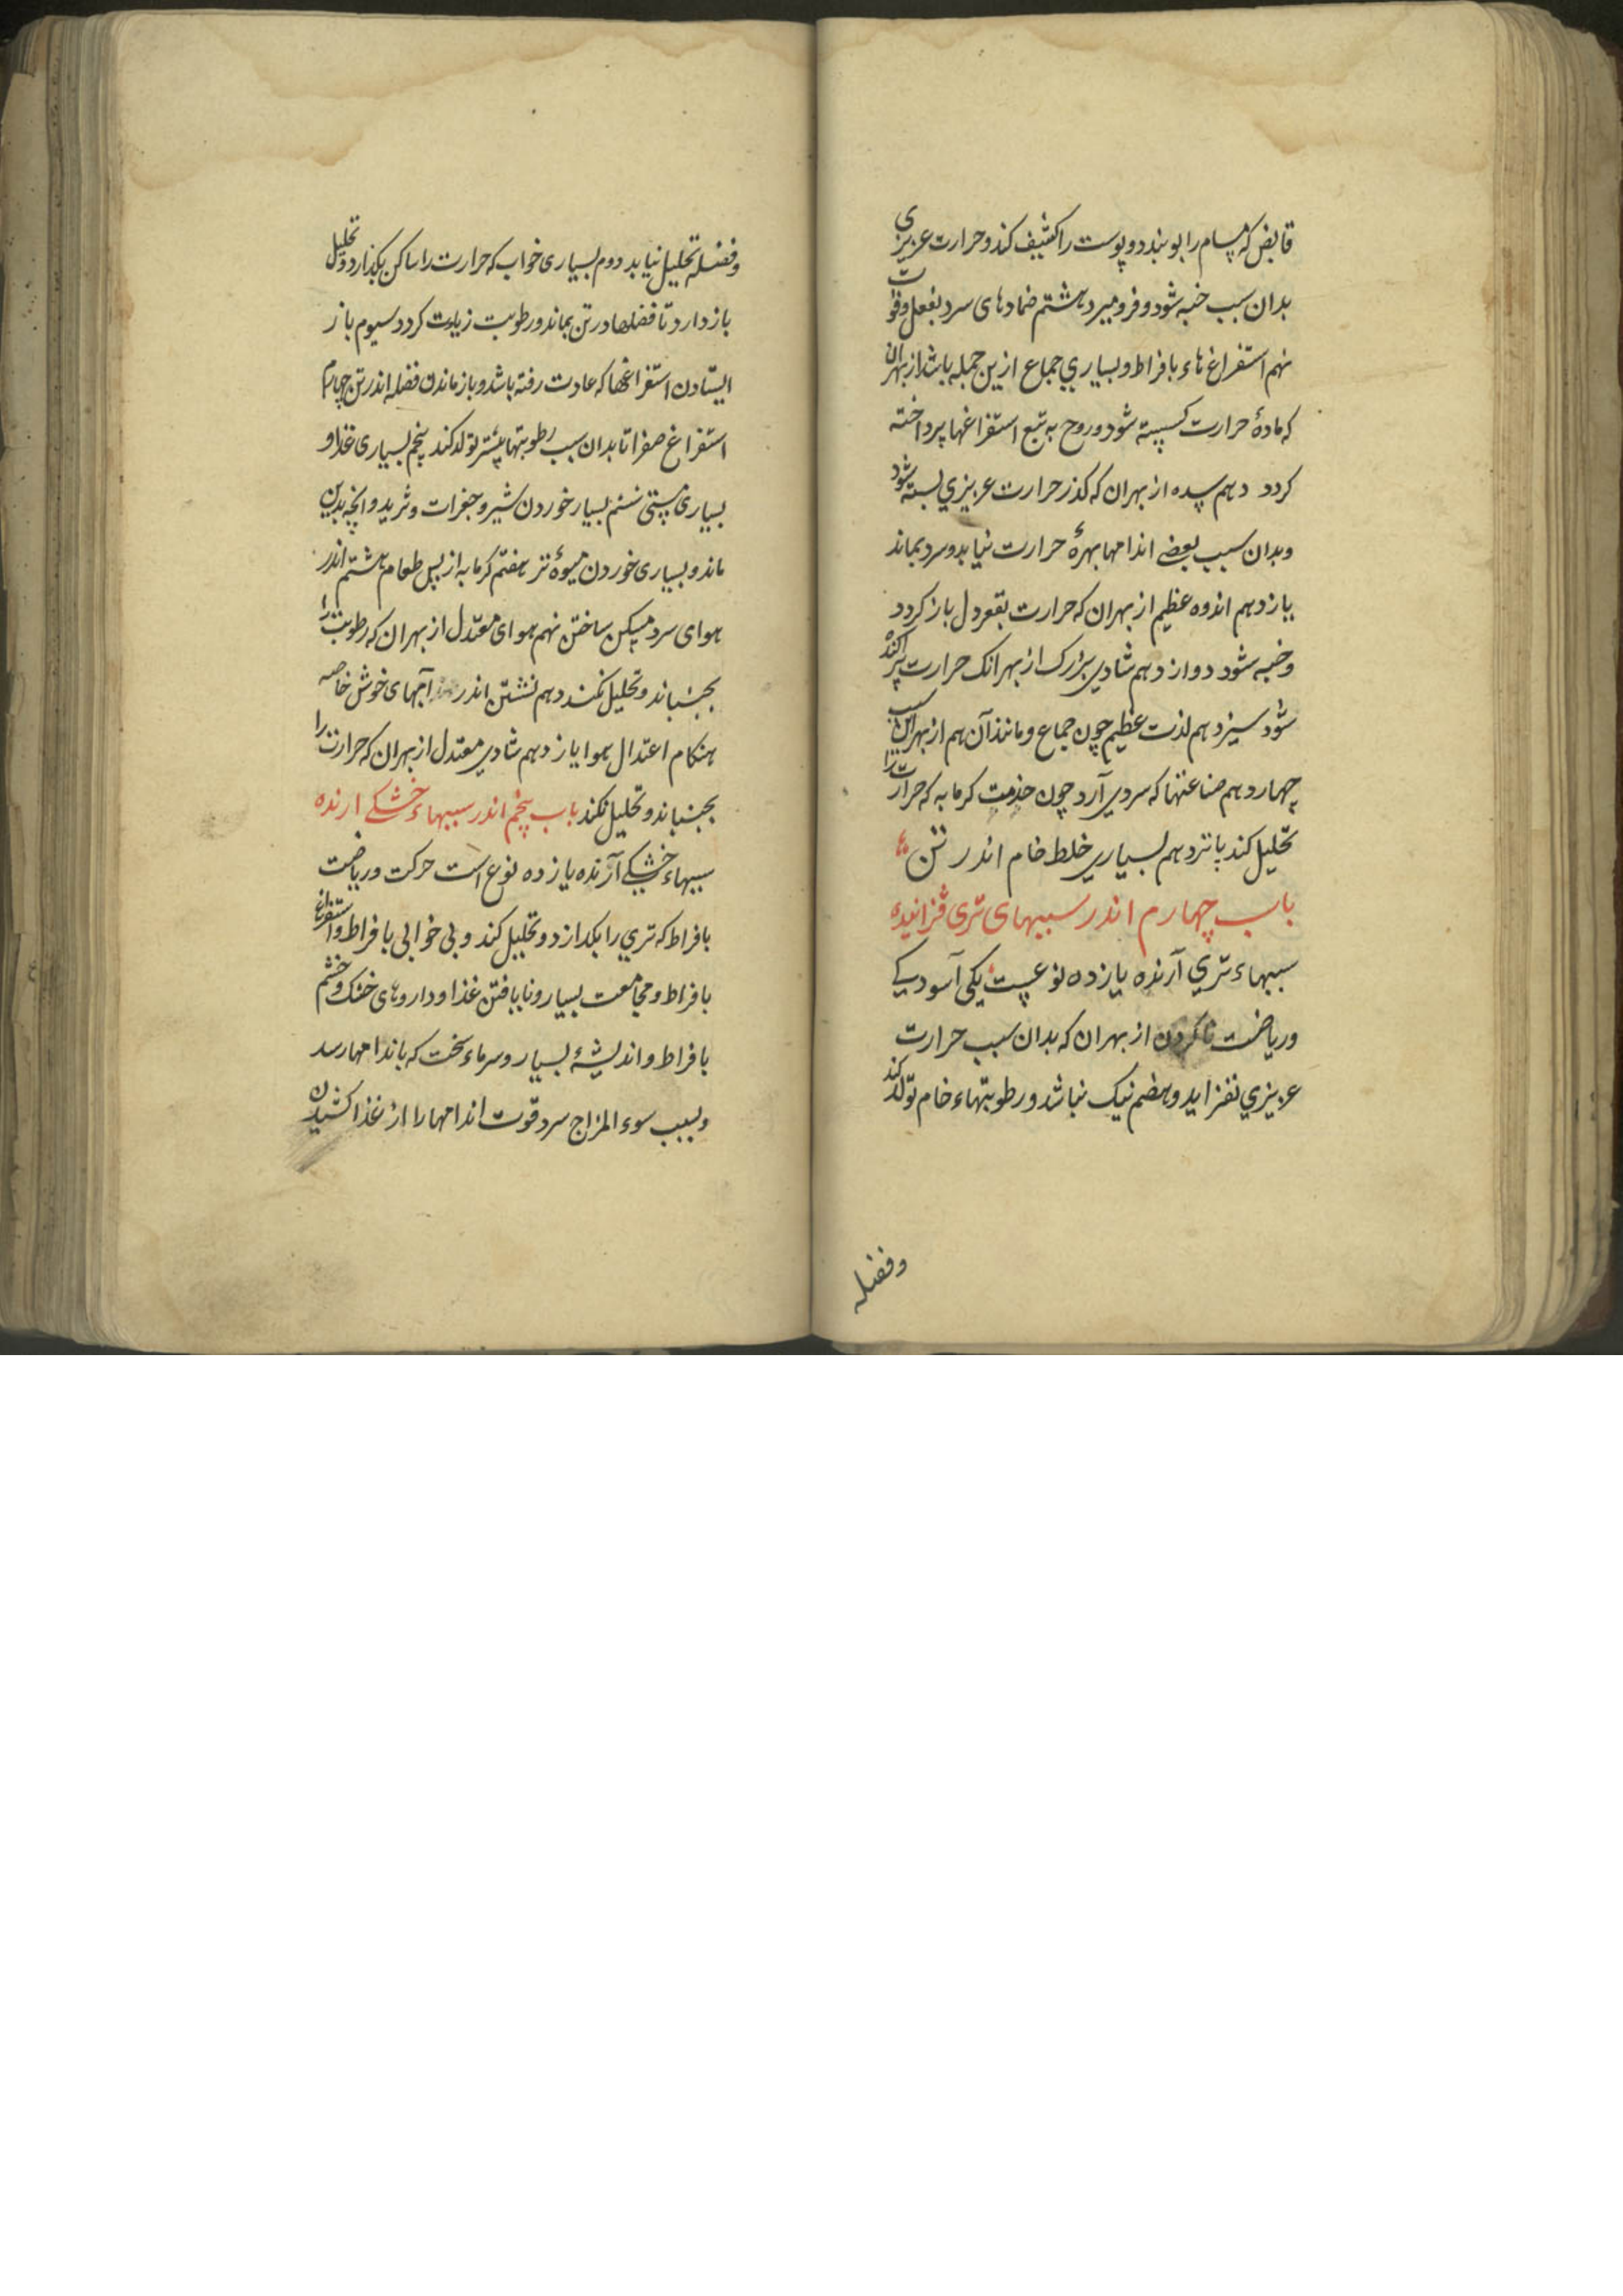 قابض که مسام را بوبندد و پوست را کثیف کند و حرارت عزیزی
بدان سبب خبه شود و فرو میرد هشتم ضمادهای سرد بفعل و قوت
نهم استفراغ هاء بافراط و بسیاري جماع ازین جمله باشد از بهران
که مادهٔ حرارت کسسته شود و روح به تبع استفراغها پرداخته
کردد دهم سده از بهران که کذر حرارت عزیزي بسته شود
و بدان سبب بعضے اندامها بهرهٔ حرارت نیابد و سرد بماند
یازدهم اندوه عظیم از بهران که حرارت بقعر دل باز کردد
و خبه شود دوازدهم شادي بزرک از بهرانک حرارت پراکنده
شود سیزدهم لذت عظیم چون جماع و مانند آن هم از بهر این سبب
چهاردهم صناعتها که سردي آرد چون خدمت کرمابه که حرارت را
تحلیل کند پانزدهم بسیاري خلط خام اندر تن
باب چهارم اندر سببهای تری فزاینده
سببهاء تري آرنده یازده نوعست یکی آسودیکے
و ریاضت ناکردن از بهران که بدان سبب حرارت
عزیزي نفزاید و هضم نیک نباشد و رطوبتهاء خام تولد کند
وفضله
وفضله تحلیل نیابد دوم بسیاری خواب که حرارت را ساکن بکذارد و تحلیل
باز دارد تا فضلها در تن بماند و رطوبت زیادت کردد سیوم باز
ایستادن استفراغها که عادت رفته باشد و باز ماندن فضله اندر تن چهارم
استفراغ صفرا تا بدان سبب رطوبتها بیشتر تولد کند پنجم بسیاری غذا و
بسیاری مستی ششم بسیار خوردن شیر و جغرات و ثرید و انچه بدین
ماند و بسیاری خوردن میوهٔ تر هفتم کرمابه از پس طعام هشتم اندر
هوای سرد مسکن ساختن نهم هوای معتدل از بهران که رطوبت را
بجنباند و تحلیل نکند دهم نشستن اندر آبهای خوش خاصه
هنکام اعتدال هوا یازدهم شادي معتدل از بهران که حرارت را
بجنباند و تحلیل نکند باب پنجم اندر سببهاء خشکے ارنده
سببهاء خشکے آرنده یازده نوع است حرکت و ریاضت
بافراط که تري را بکدازد و تحلیل کند و بی خوابی بافراط و استفراغ
بافراط و مجامعت بسیار و نایافتن غذا و داروهای خشک و خشم
بافراط و اندیشهٔ بسیار و سرماء سخت که باندامها رسد
و بسبب سوء المزاج سرد قوت اندامها را از غذا کشیدن